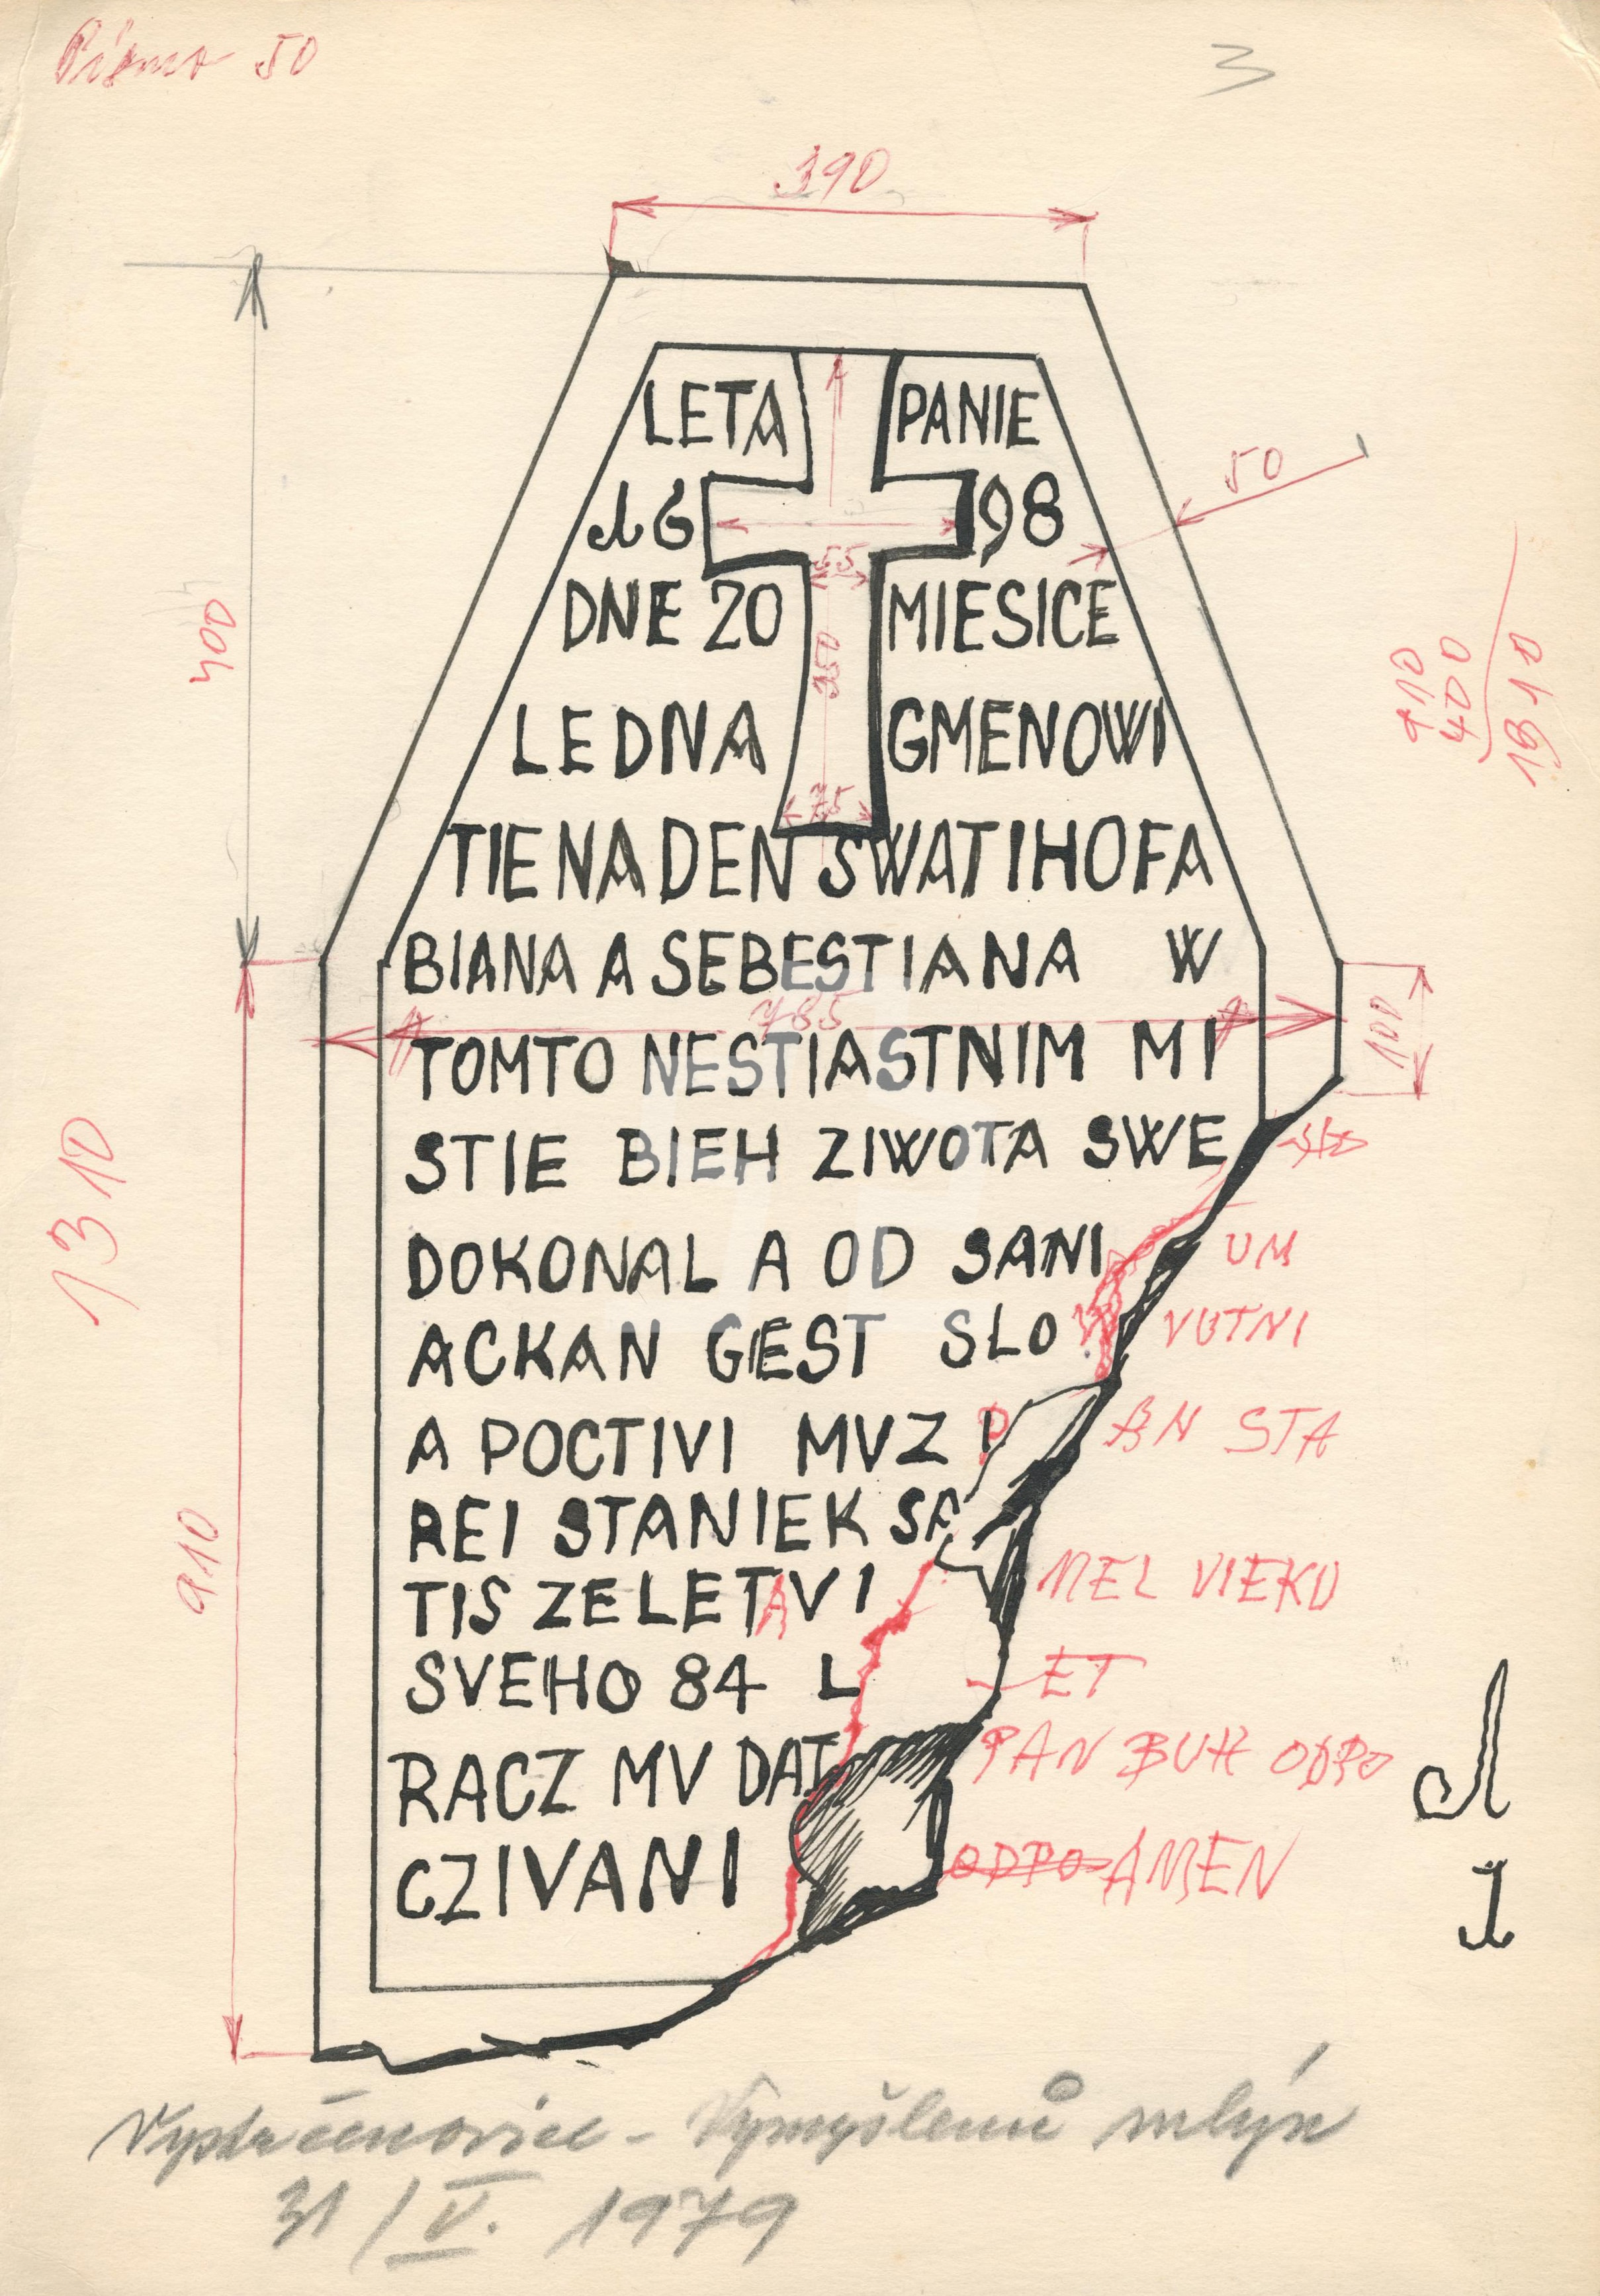 Písmo 50
3
390
LETA PANIE
16 98
50
DNE 20 MIESICE
55
400
350
910
400
1310
LEDNA GMENOWI
75
TIE NA DEN SWATIHO FA
BIANA A SEBESTIANA W
785
100
TOMTO NESTIASTNIM MI
STIE BIEH ZIWOTA SWE
1310
DOKONAL A OD SANI UM
ACKAN GEST SLO VUTNI
A POCTIVI MVZ P AN STA
REI STANIEK SE
910
TIS ZELETAVI MEL VIEKU
SVEHO 84 L ET
RACZ MV DAT PAN BUH ODPO
CZIVANI ODPO AMEN
1
1
Vystrčenovice - Vymyšlenů mlýn
31/V. 1979